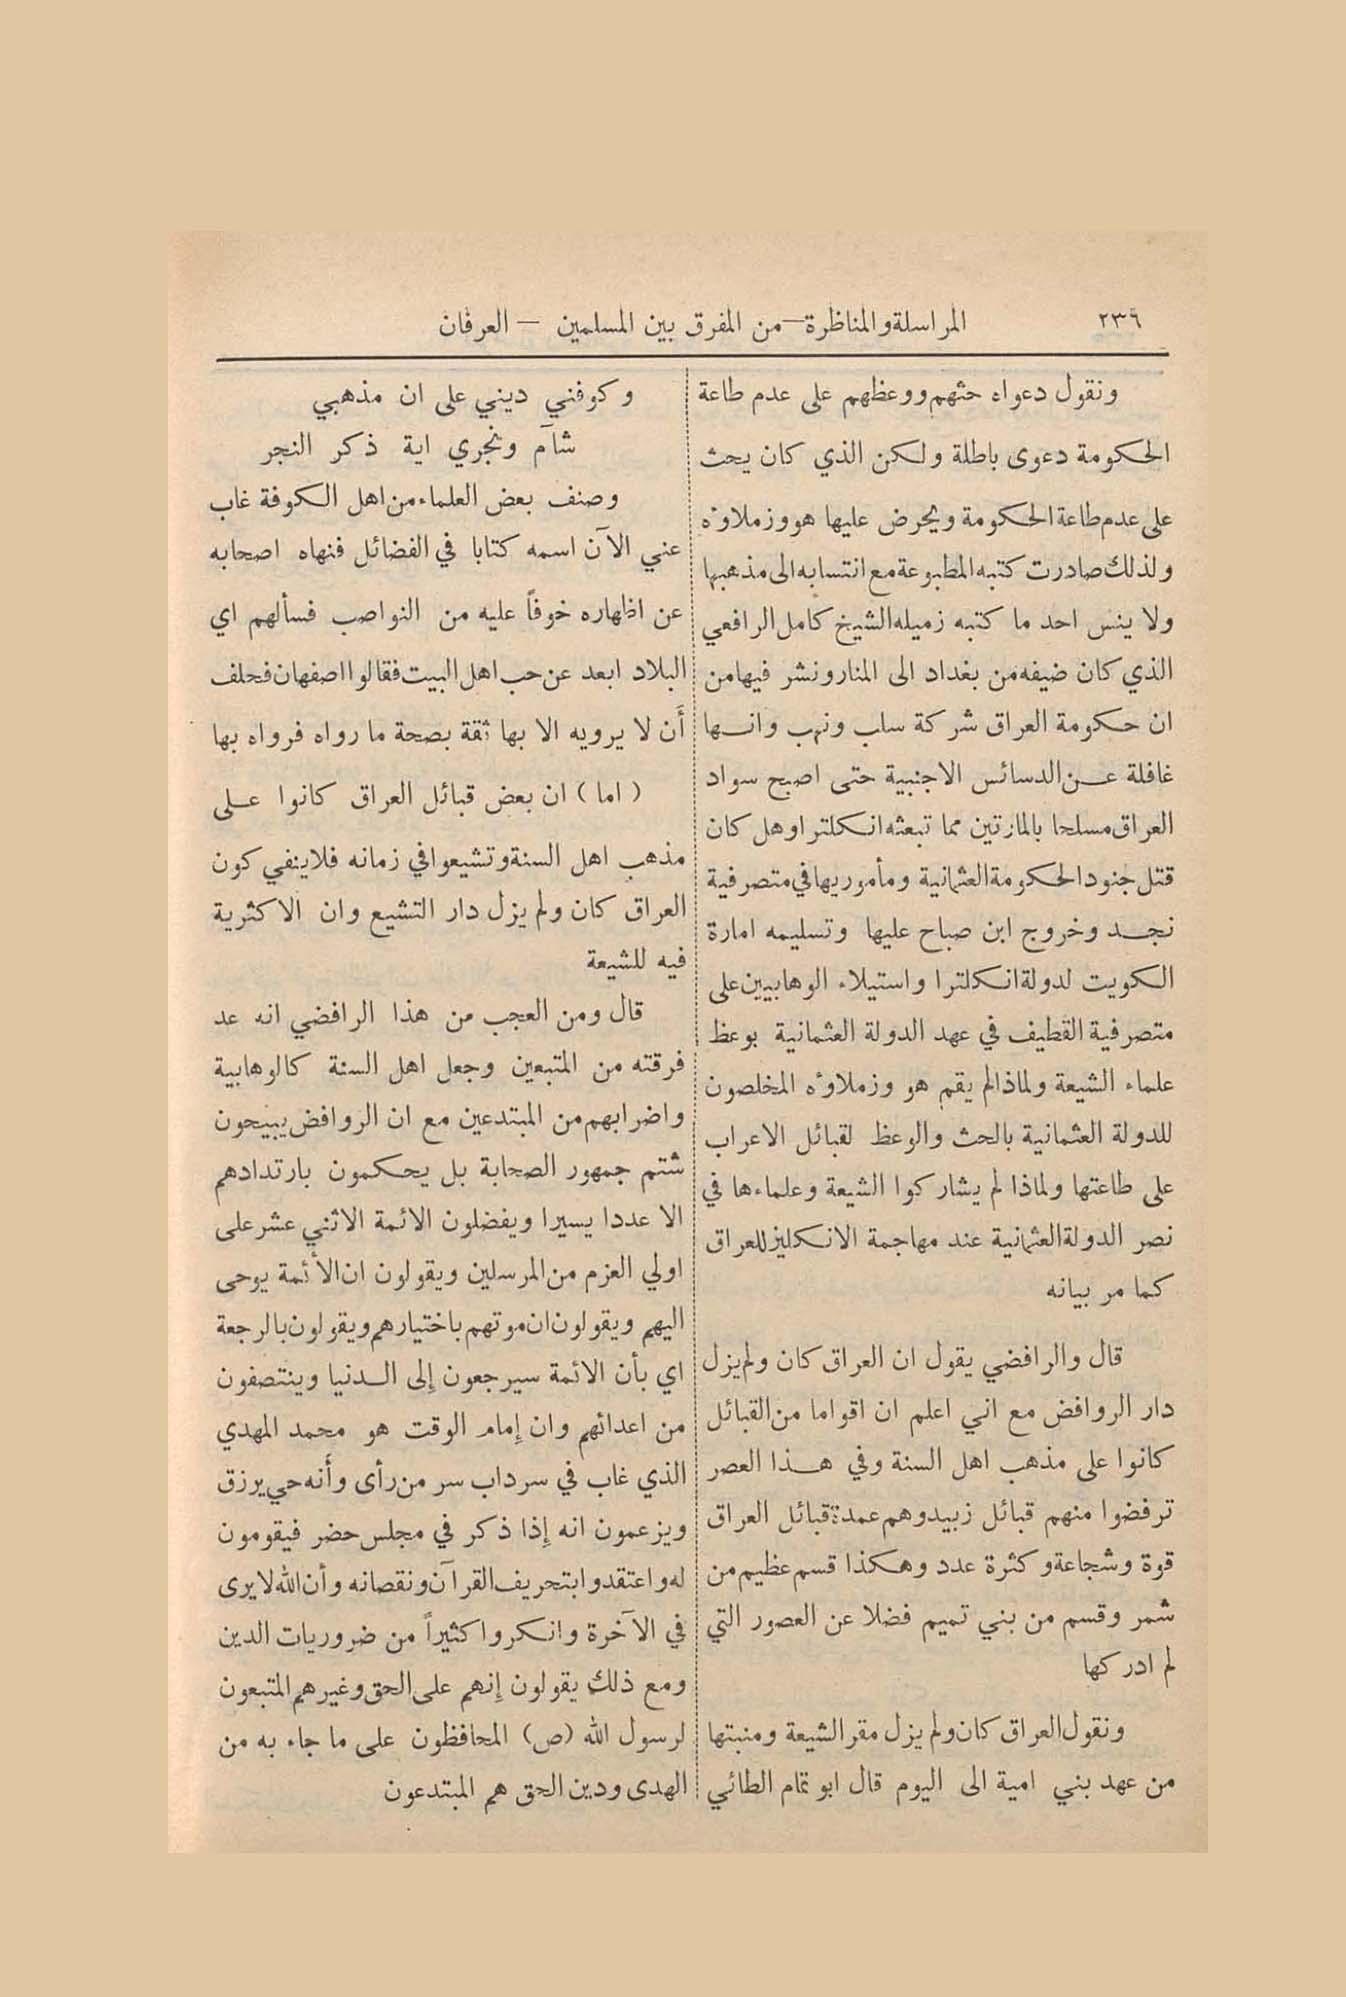 ٢٣٦ المراسلة والمناظرة — من المفرق بين المسلمين — العرفان
ونقول دعواه حثهم ووعظهم على عدم طاعة
الحكومة دعوى باطلة ولكن الذي كان يحث
على عدم طاعة الحكومة ويحرض عليها هو وزملاؤه
ولذلك صادرت كتبه المطبوعة مع انتسابه الى مذهبها
ولا ينس احد ما كتبه زميله الشيخ كامل الرافعي
الذي كان ضيفه من بغداد الى المنار ونشر فيها من
ان حكومة العراق شركة سلب ونهب وانها
غافلة عن الدسائس الاجنبية حتى اصبح سواد
العراق مسلحا بالمارتين مما تبعثه انكلترا وهل كان
قتل جنود الحكومة العثمانية ومأموريها في متصرفية
نجد وخروج ابن صباح عليها وتسليمه امارة
الكويت لدولة انكلترا واستيلاء الوهابيين على
متصرفية القطيف في عهد الدولة العثمانية بوعظ
علماء الشيعة ولماذا لم يقم هو وزملاؤه المخلصون
للدولة العثمانية بالحث والوعظ لقبائل الاعراب
على طاعتها ولماذا لم يشاركوا الشيعة وعلماءها في
نصر الدولة العثمانية عند مهاجمة الانكليز للعراق
كما مر بيانه
قال والرافضي يقول ان العراق كان ولم يزل
دار الروافض مع اني اعلم ان اقواما من القبائل
كانوا على مذهب اهل السنة وفي هذا العصر
ترفضوا منهم قبائل زبيد وهم عمدة قبائل العراق
قوة وشجاعة وكثرة عدد وهكذا قسم عظيم من
شمر وقسم من بني تميم فضلا عن العصور التي
لم ادركها
ونقول العراق كان ولم يزل مقر الشيعة ومنبتها
من عهد بني امية الى اليوم قال ابو تمام الطائي
وكوفني ديني على ان مذهبي
شآم ونجري اية ذكر النجر
وصنف بعض العلماء من اهل الكوفة غاب
عني الآن اسمه كتابا في الفضائل فنهاه اصحابه
عن اظهاره خوفاً عليه من النواصب فسألهم اي
البلاد ابعد عن حب اهل البيت فقالوا اصفهان فحلف
أن لا يرويه الا بها ثقة بصحة ما رواه فرواه بها
( اما ) ان بعض قبائل العراق كانوا على
مذهب اهل السنة وتشيعوا في زمانه فلا ينفي كون
العراق كان ولم يزل دار التشيع وان الاكثرية
فيه للشيعة
قال ومن العجب من هذا الرافضي انه عد
فرقته من المتبعين وجعل اهل السنة كالوهابية
واضرابهم من المبتدعين مع ان الروافض يبيحون
شتم جمهور الصحابة بل يحكمون بارتدادهم
الا عددا يسيرا ويفضلون الائمة الاثني عشر على
اولي العزم من المرسلين ويقولون ان الأئمة يوحى
اليهم ويقولون ان موتهم باختيارهم ويقولون بالرجعة
اي بأن الائمة سيرجعون إلى الدنيا وينتصفون
من اعدائهم وان إمام الوقت هو محمد المهدي
الذي غاب في سرداب سر من رأى وأنه حي يرزق
ويزعمون انه إذا ذكر في مجلس حضر فيقومون
له واعتقدوا بتحريف القرآن ونقصانه وأن الله لا يرى
في الآخرة وانكروا كثيراً من ضروريات الدين
ومع ذلك يقولون إنهم على الحق وغيرهم المتبعون
لرسول الله (ص) المحافظون على ما جاء به من
الهدى ودين الحق هم المبتدعون